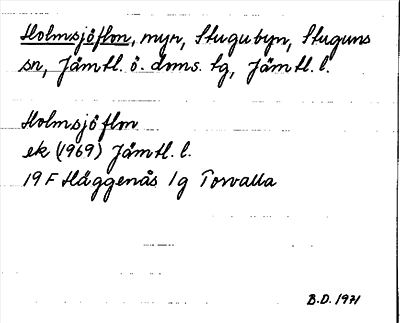 Holmsjöflon, myr, Stugubyn, Stuguns
sn, Jämtl. ö. doms. tg, Jämtl. l.
Holmsjöflon
ek (1969) Jämtl. l.
19 F Häggenås 1g Torvalla
B.D. 1971